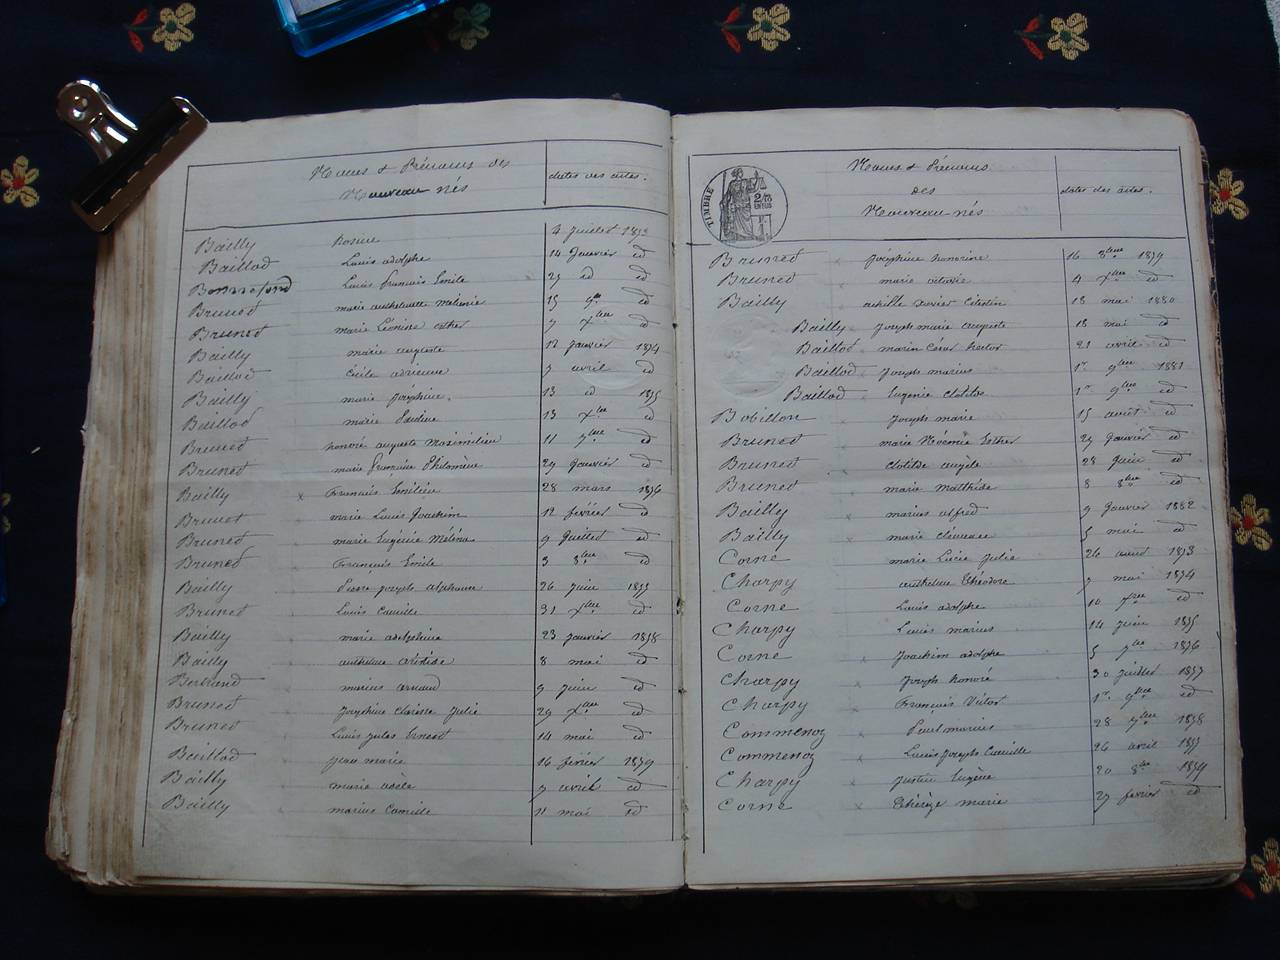 Noms & Prénoms des
Nouveau nés
dates des actes.
Bailly Rosine 4 Juillet 1873
Baillod Louis adolphe 14 Janvier id
Bonnefond Louis François Emile 25 id id
Brunod marie anthelmette Mélanie 15 9bre id
Brunod marie Léonine esther 7 Xbre id
Bailly marie auguste 12 Janvier 1874
Baillod Cécile adrienne 7 avril id
Bailly marie Joséphine 13 id 1875
Baillod marie Pauline 13 Xbre id
Brunod honoré auguste Maximilien 11 9bre id
Brunod marie Françoise Philomène 29 Janvier id
Bailly x François Emilien 28 mars 1876
Brunod marie Louis Joachim 12 février id
Brunod marie Eugénie Mélina 9 Juillet id
Brunod François Emile 3 8bre id
Bailly Pierre joseph alphonse 26 Juin 1877
Brunod Louis Camille 31 Xbre id
Bailly marie adelphine 23 Janvier 1878
Bailly anthelme aristide 8 mai id
Bertrand marius arnaud 9 Juin id
Brunod Joséphine Clarisse Julie 29 Xbre id
Brunod Louis jules Ernest 14 mai id
Baillod jean marie 16 février 1879
Bailly marie adèle 7 avril id
Bailly marius Camille 11 mai id
TIMBRE
Noms & Prénoms
des
Nouveau-nés
dates des actes.
Brunod x Joséphine honorine 16 8bre 1879
Brunod x marie octavie 4 Xbre id
Bailly achille Xavier Célestin 18 mai 1880
Bailly x Joseph marie auguste 18 mai id
Baillod x marin César hector 21 avril id
Baillod x Joseph marius 1er 9bre 1881
Baillod x Eugénie Clotilde 1er 9bre id
Bobillon x Joseph marie 15 août id
Brunod x marie Noémie Esther 29 Janvier id
Brunod x Clotilde angèle 28 Juin id
Brunod x marie Mathilde 8 8bre id
Bailly x marius alfred 9 Janvier 1882
Bailly x marie clémence 5 mai id
Corne marie Lucie Julie 26 août 1873
Charpy anthelme théodore 7 mai 1874
Corne Louis adolphe 10 Xbre id
Charpy x Louis marius 14 juin 1875
Corne x Joachim adolphe 5 9bre 1876
Charpy x Joseph honoré 30 juillet 1877
Charpy x François Victor 1er 9bre id
Commenoz x Paul marius 28 9bre 1878
Commenoz x Louis Joseph Camille 26 avril 1877
Charpy x Justin Eugène 20 8bre 1879
Corne x thérèze marie 27 février id